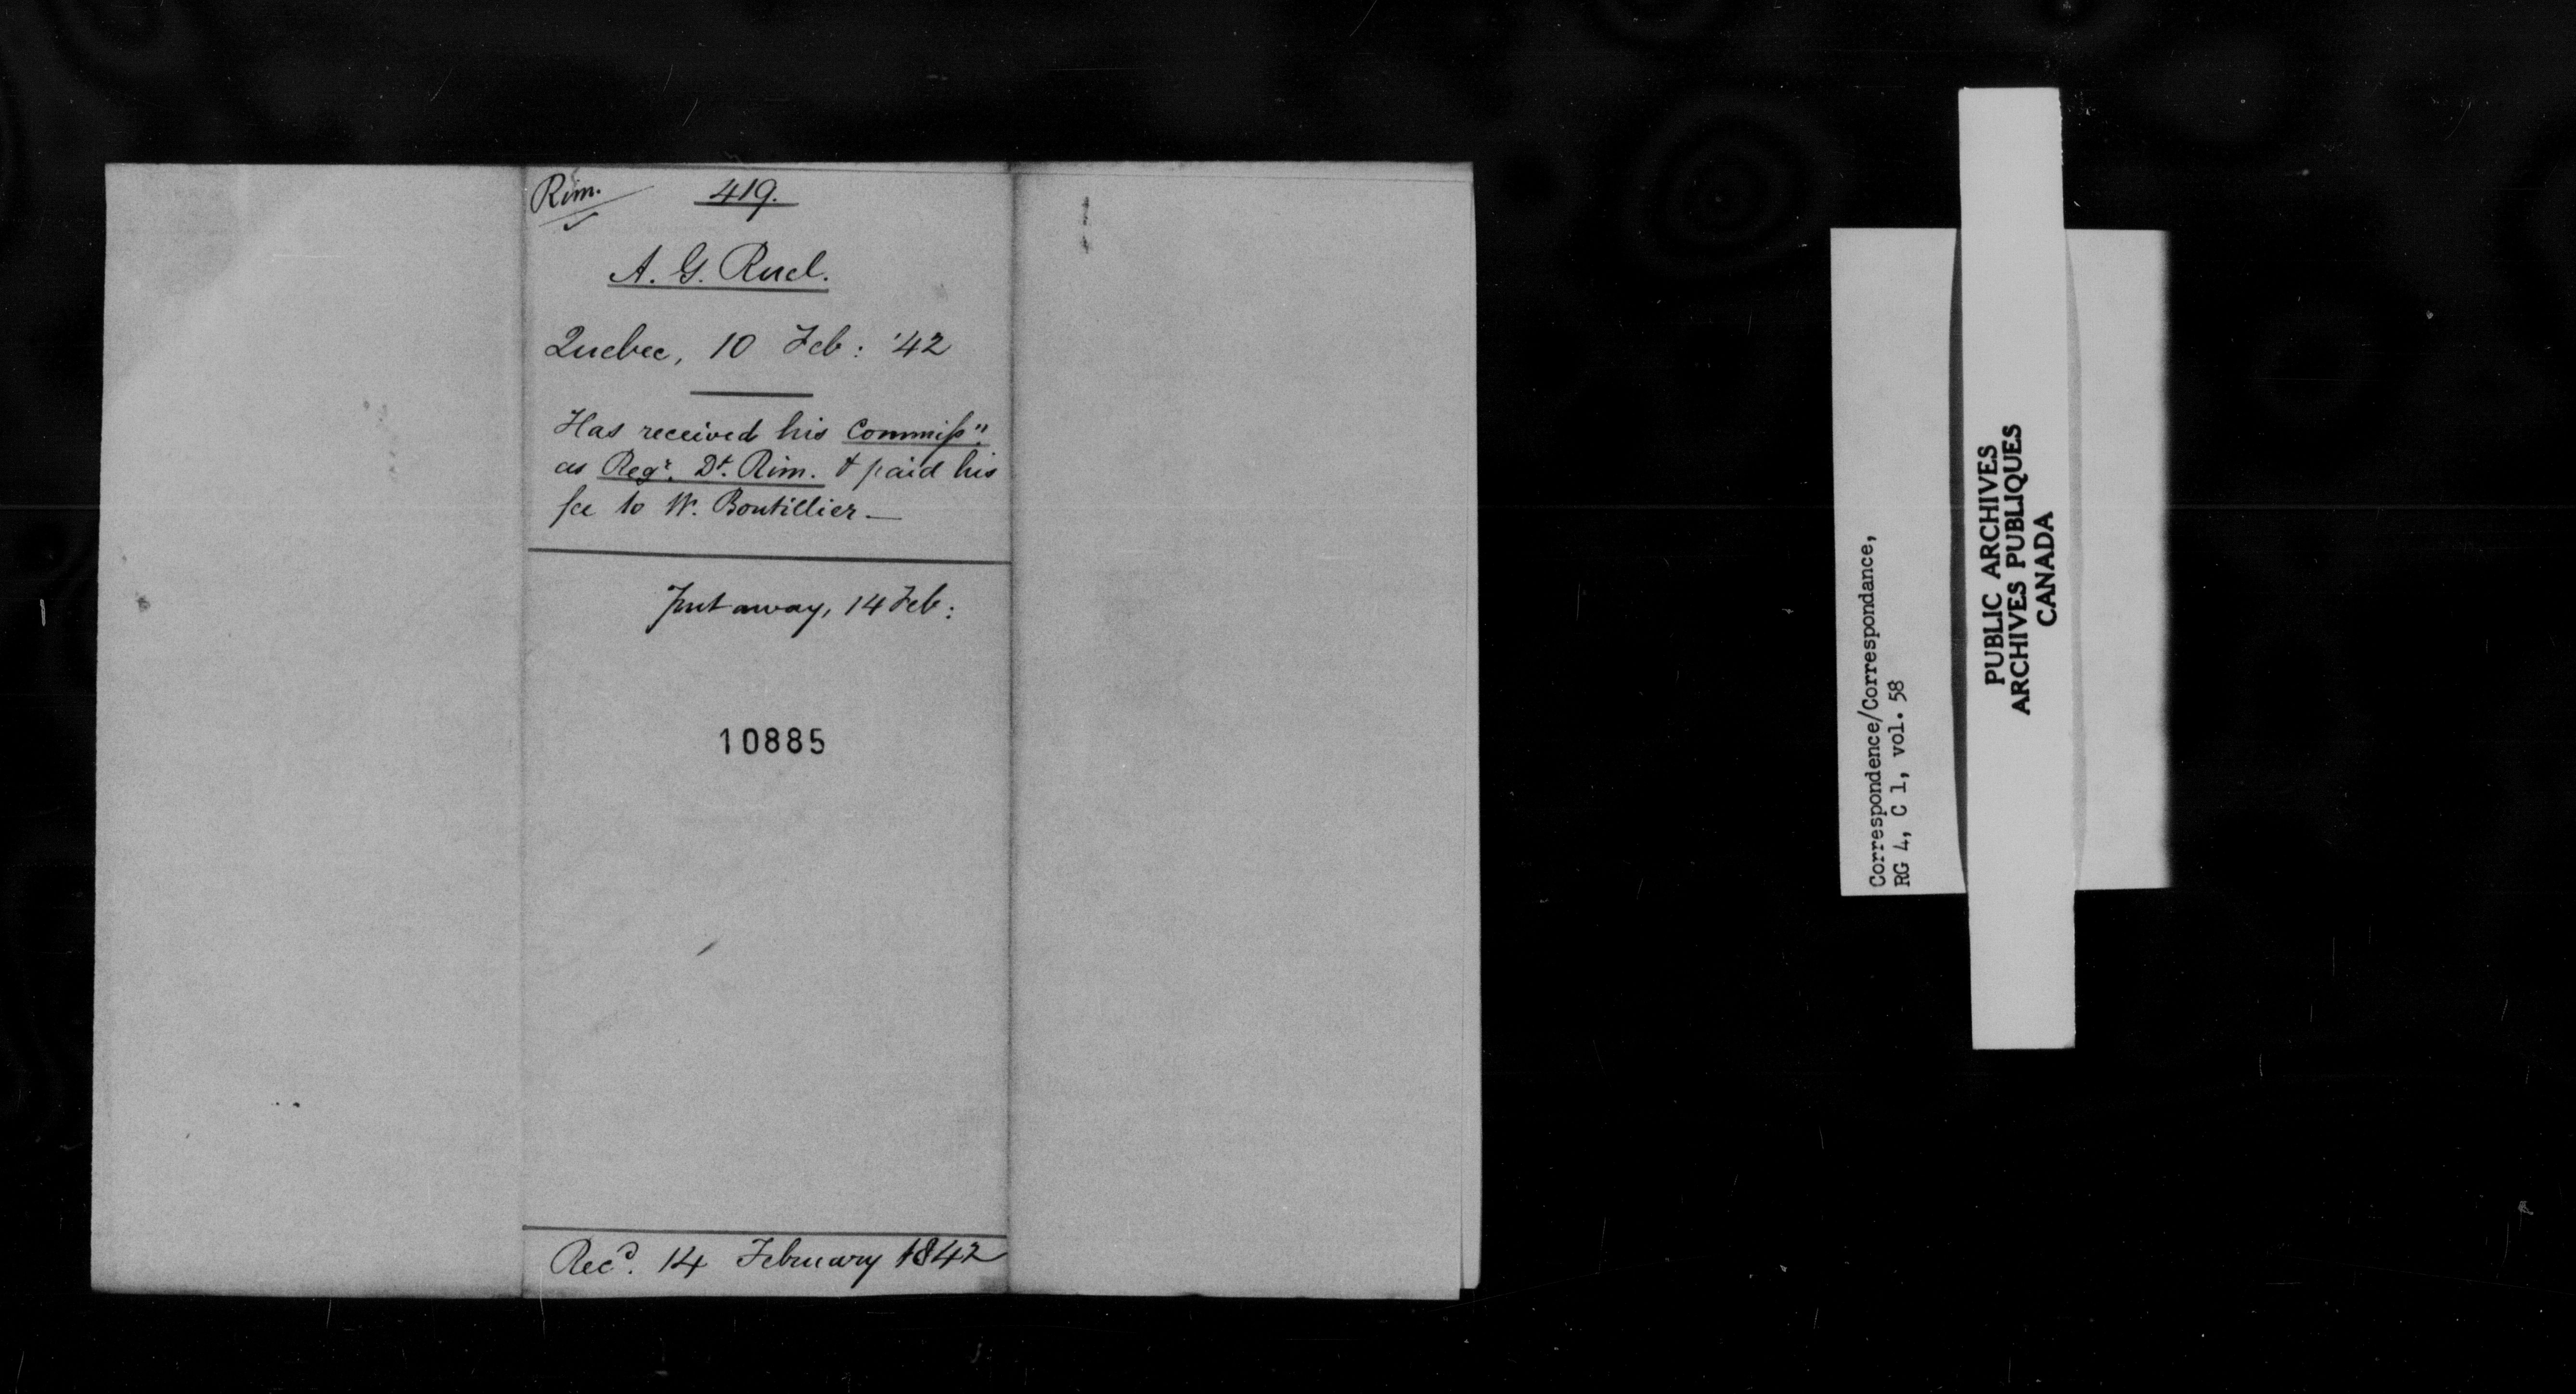 Rim.
419.
A. G. Ruel.
Quebec, 10 Feb: '42
Has received his Commissn.
as Regr. Dt. Rim. & paid his
fee to W. Boutillier—
Put away, 14 Feb:
10885
Recd. 14 February 1842
Correspondence/Correspondance,
RG 4, C 1, vol. 58
PUBLIC ARCHIVES
ARCHIVES PUBLIQUES
CANADA